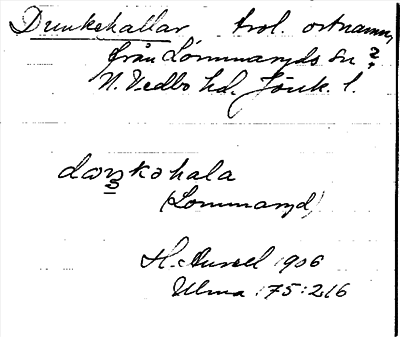 Dunkehallar trol. ortnamn,
från Lommaryds sn?
N. Vedbo hd. Jönk. l.
daŋkəhala
(Lommaryd)
H. Aurell 1906
Ulma 175:216